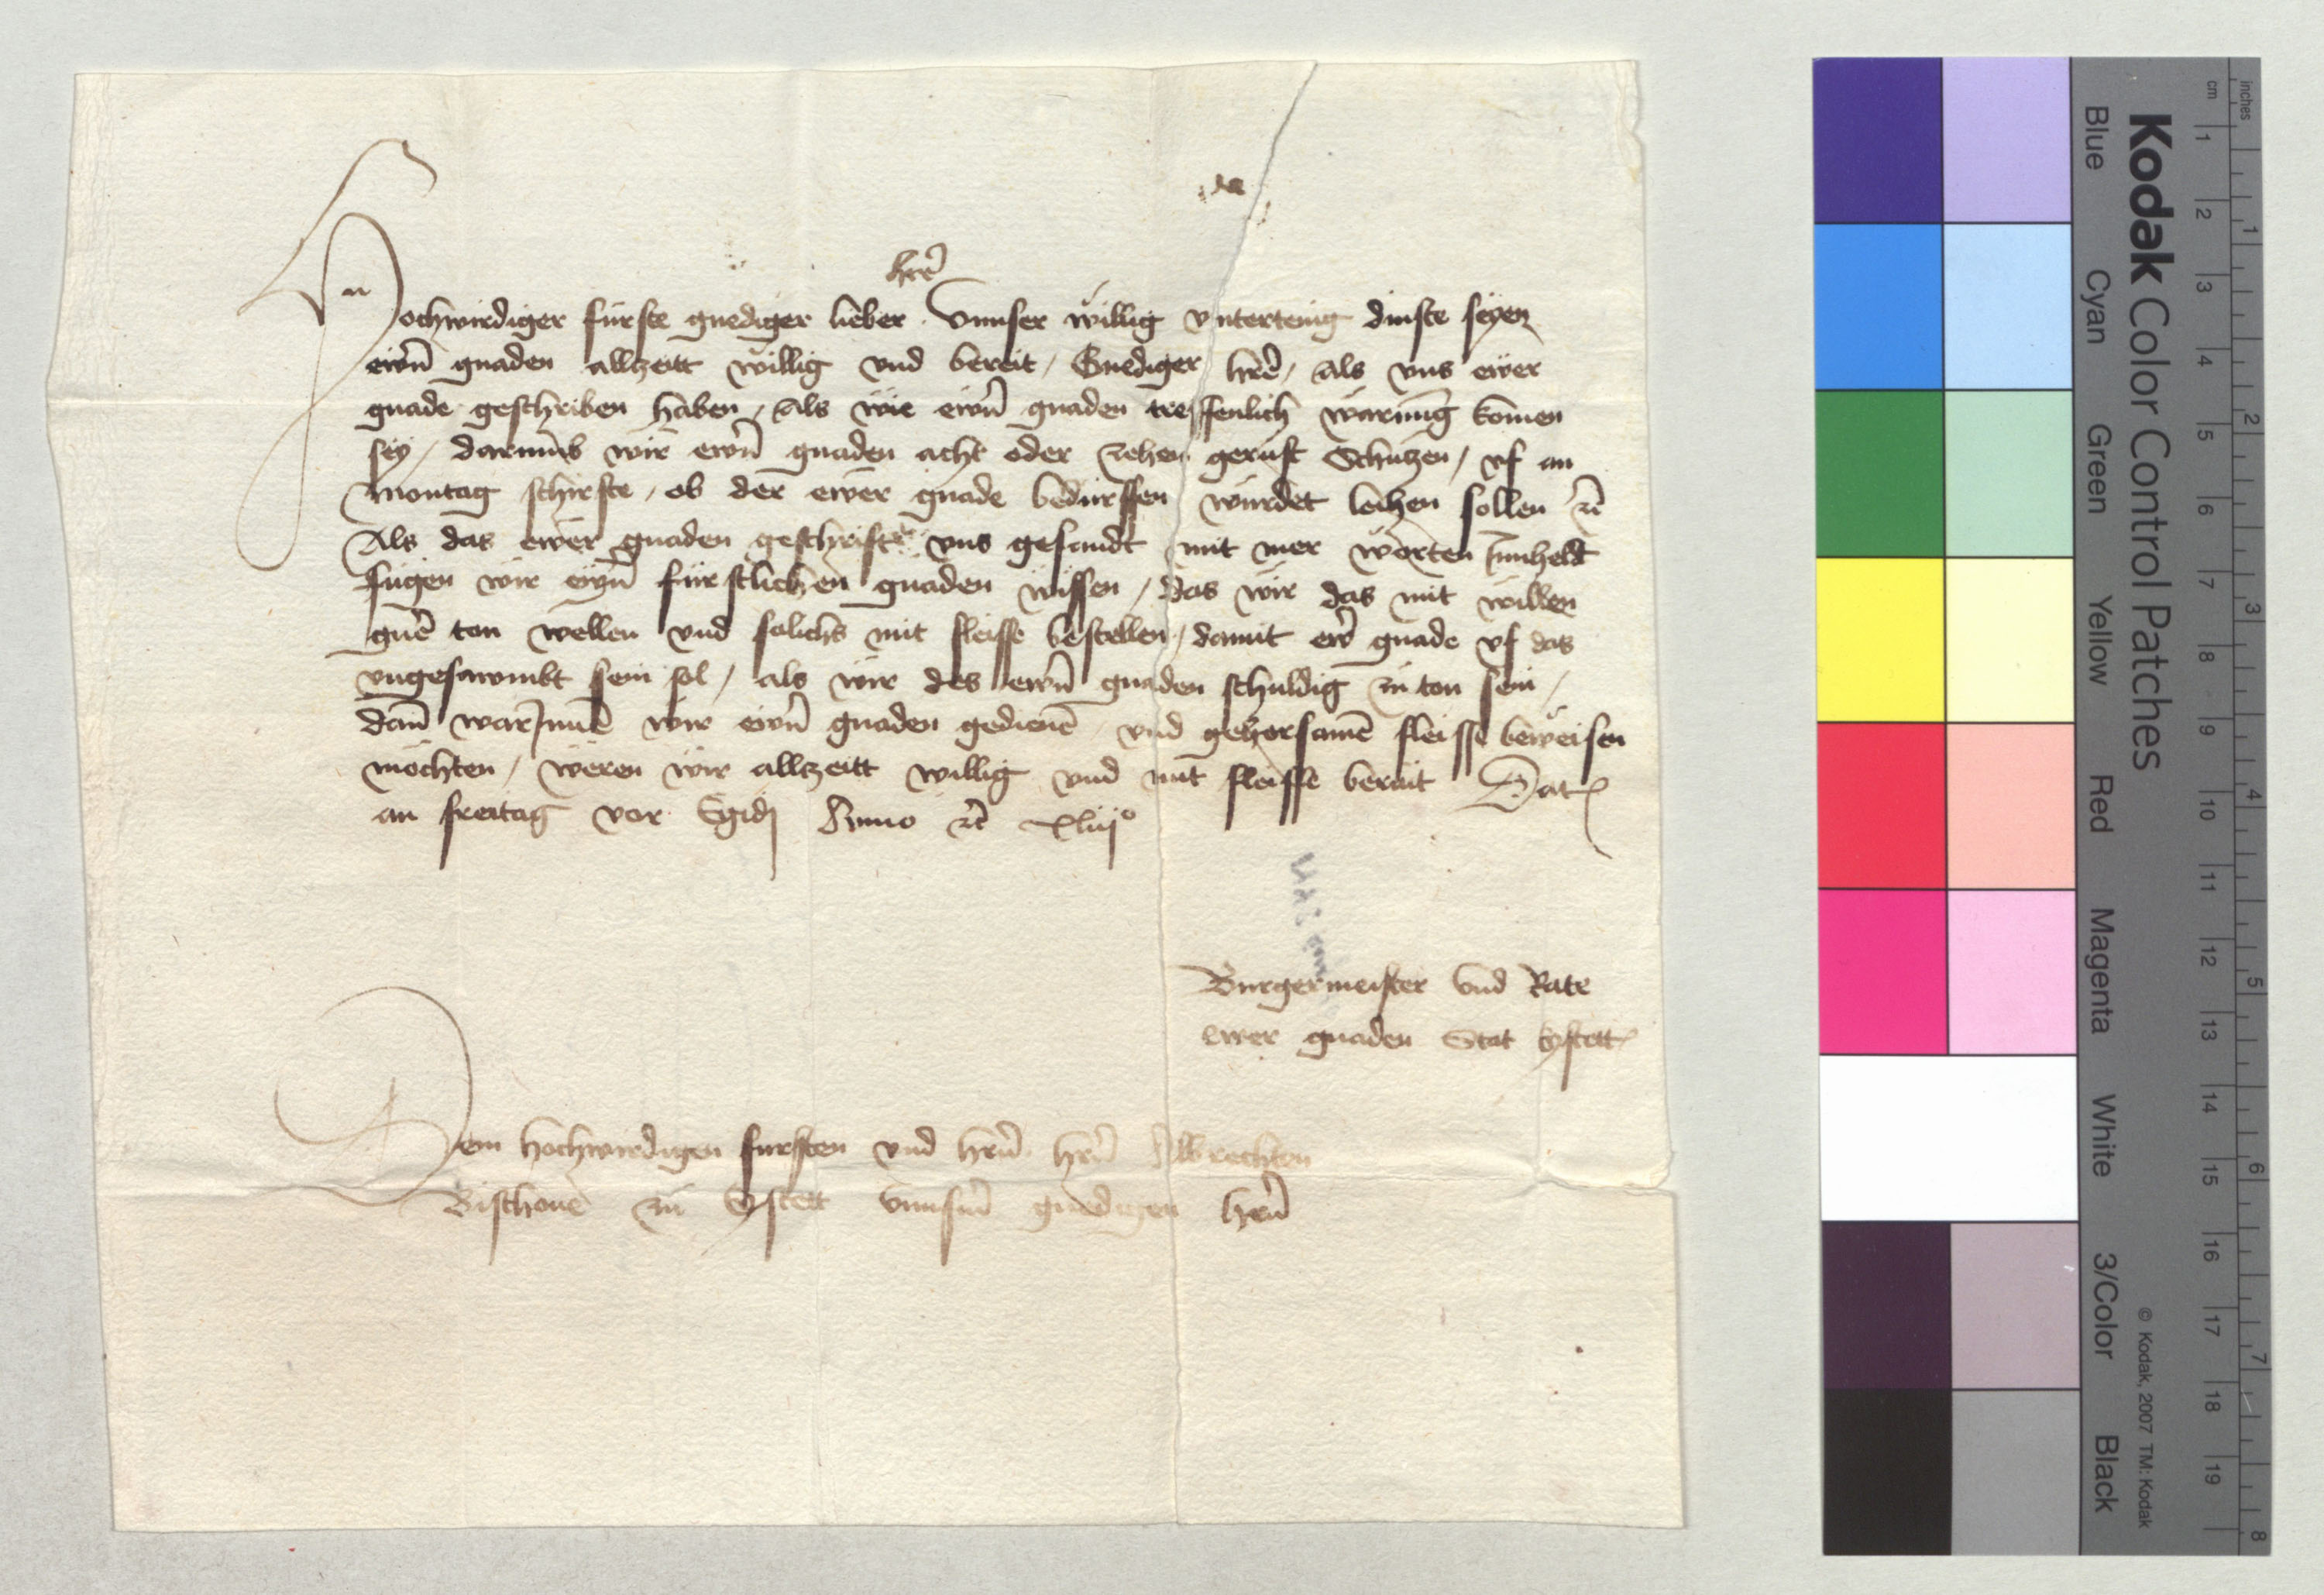 herre
Hochwirdiger fürste gnediger lieber Unnser willig untertenig dinste seyen
ewrn gnaden allzeitt willig vnd bereit / Gnediger hrre / als vns ewer
gnade geschriben haben / als wie ewrn gnaden treffenlich warnung komen
sey / darumb wir ewrn gnaden acht oder zehen gerust Schutzen / vf an
montag schirste / ob der ewer gnade bedürffen wurdet leihen sollen etc
Als das ewer gnaden geschrift vns gesandt mit mer worten innheldt
fugen wir ewrn fürstlichen gnaden wissen / das wir das mit willen
gerne ton wellen vnd solichs mit fleisse bestellen / damit ewr gnade vf das
vngesawmbt sein sol / als wir des ewrn gnaden schuldig zu ton sein /
dann warinne wir ewrn gnaden gedienen vnd gehorsamen fleisse beweisen
möchten / weren wir allzeitt willig vnd mit fleisse berait Dat
an freitag vor Egidj Anno etc xliijo
Burgermeister vnd Rate
ewer gnaden Stat Eystett
Dem hochwirdigen fursten vnd hern hern Albrechten
Bischoue zu Eystett vnnserm gnedigen hern
Kodak Color Control Patches
Blue Cyan Green Yellow Red Magenta White 3/Color Black
© Kodak, 2007 TM: Kodak
cm 1 2 3 4 5 6 7 8 9 10 11 12 13 14 15 16 17 18 19
inches 1 2 3 4 5 6 7 8